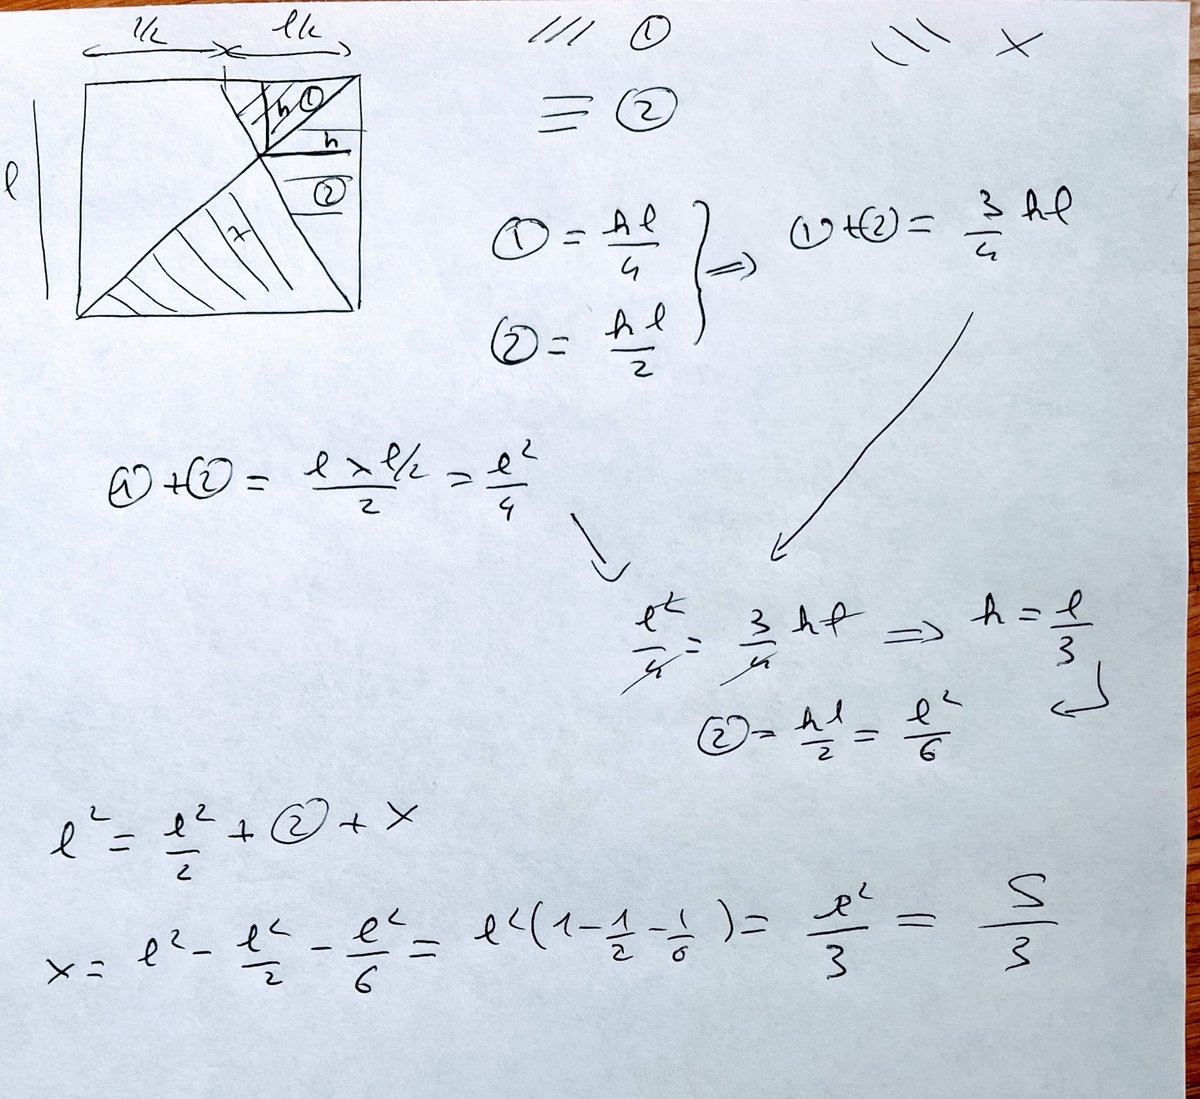 l/2 l/2
/// ①
\\\ x
≡ ②
l
h ①
h
②
x
① = hl/4
② = hl/2
} => ①+② = 3/4 hl
①+② = l × l/2 / 2 = l²/4
l²/4 = 3/4 hl => h = l/3
② = hl/2 = l²/6
l² = l²/2 + ② + x
x = l² - l²/2 - l²/6 = l²(1 - 1/2 - 1/6) = l²/3 = S/3